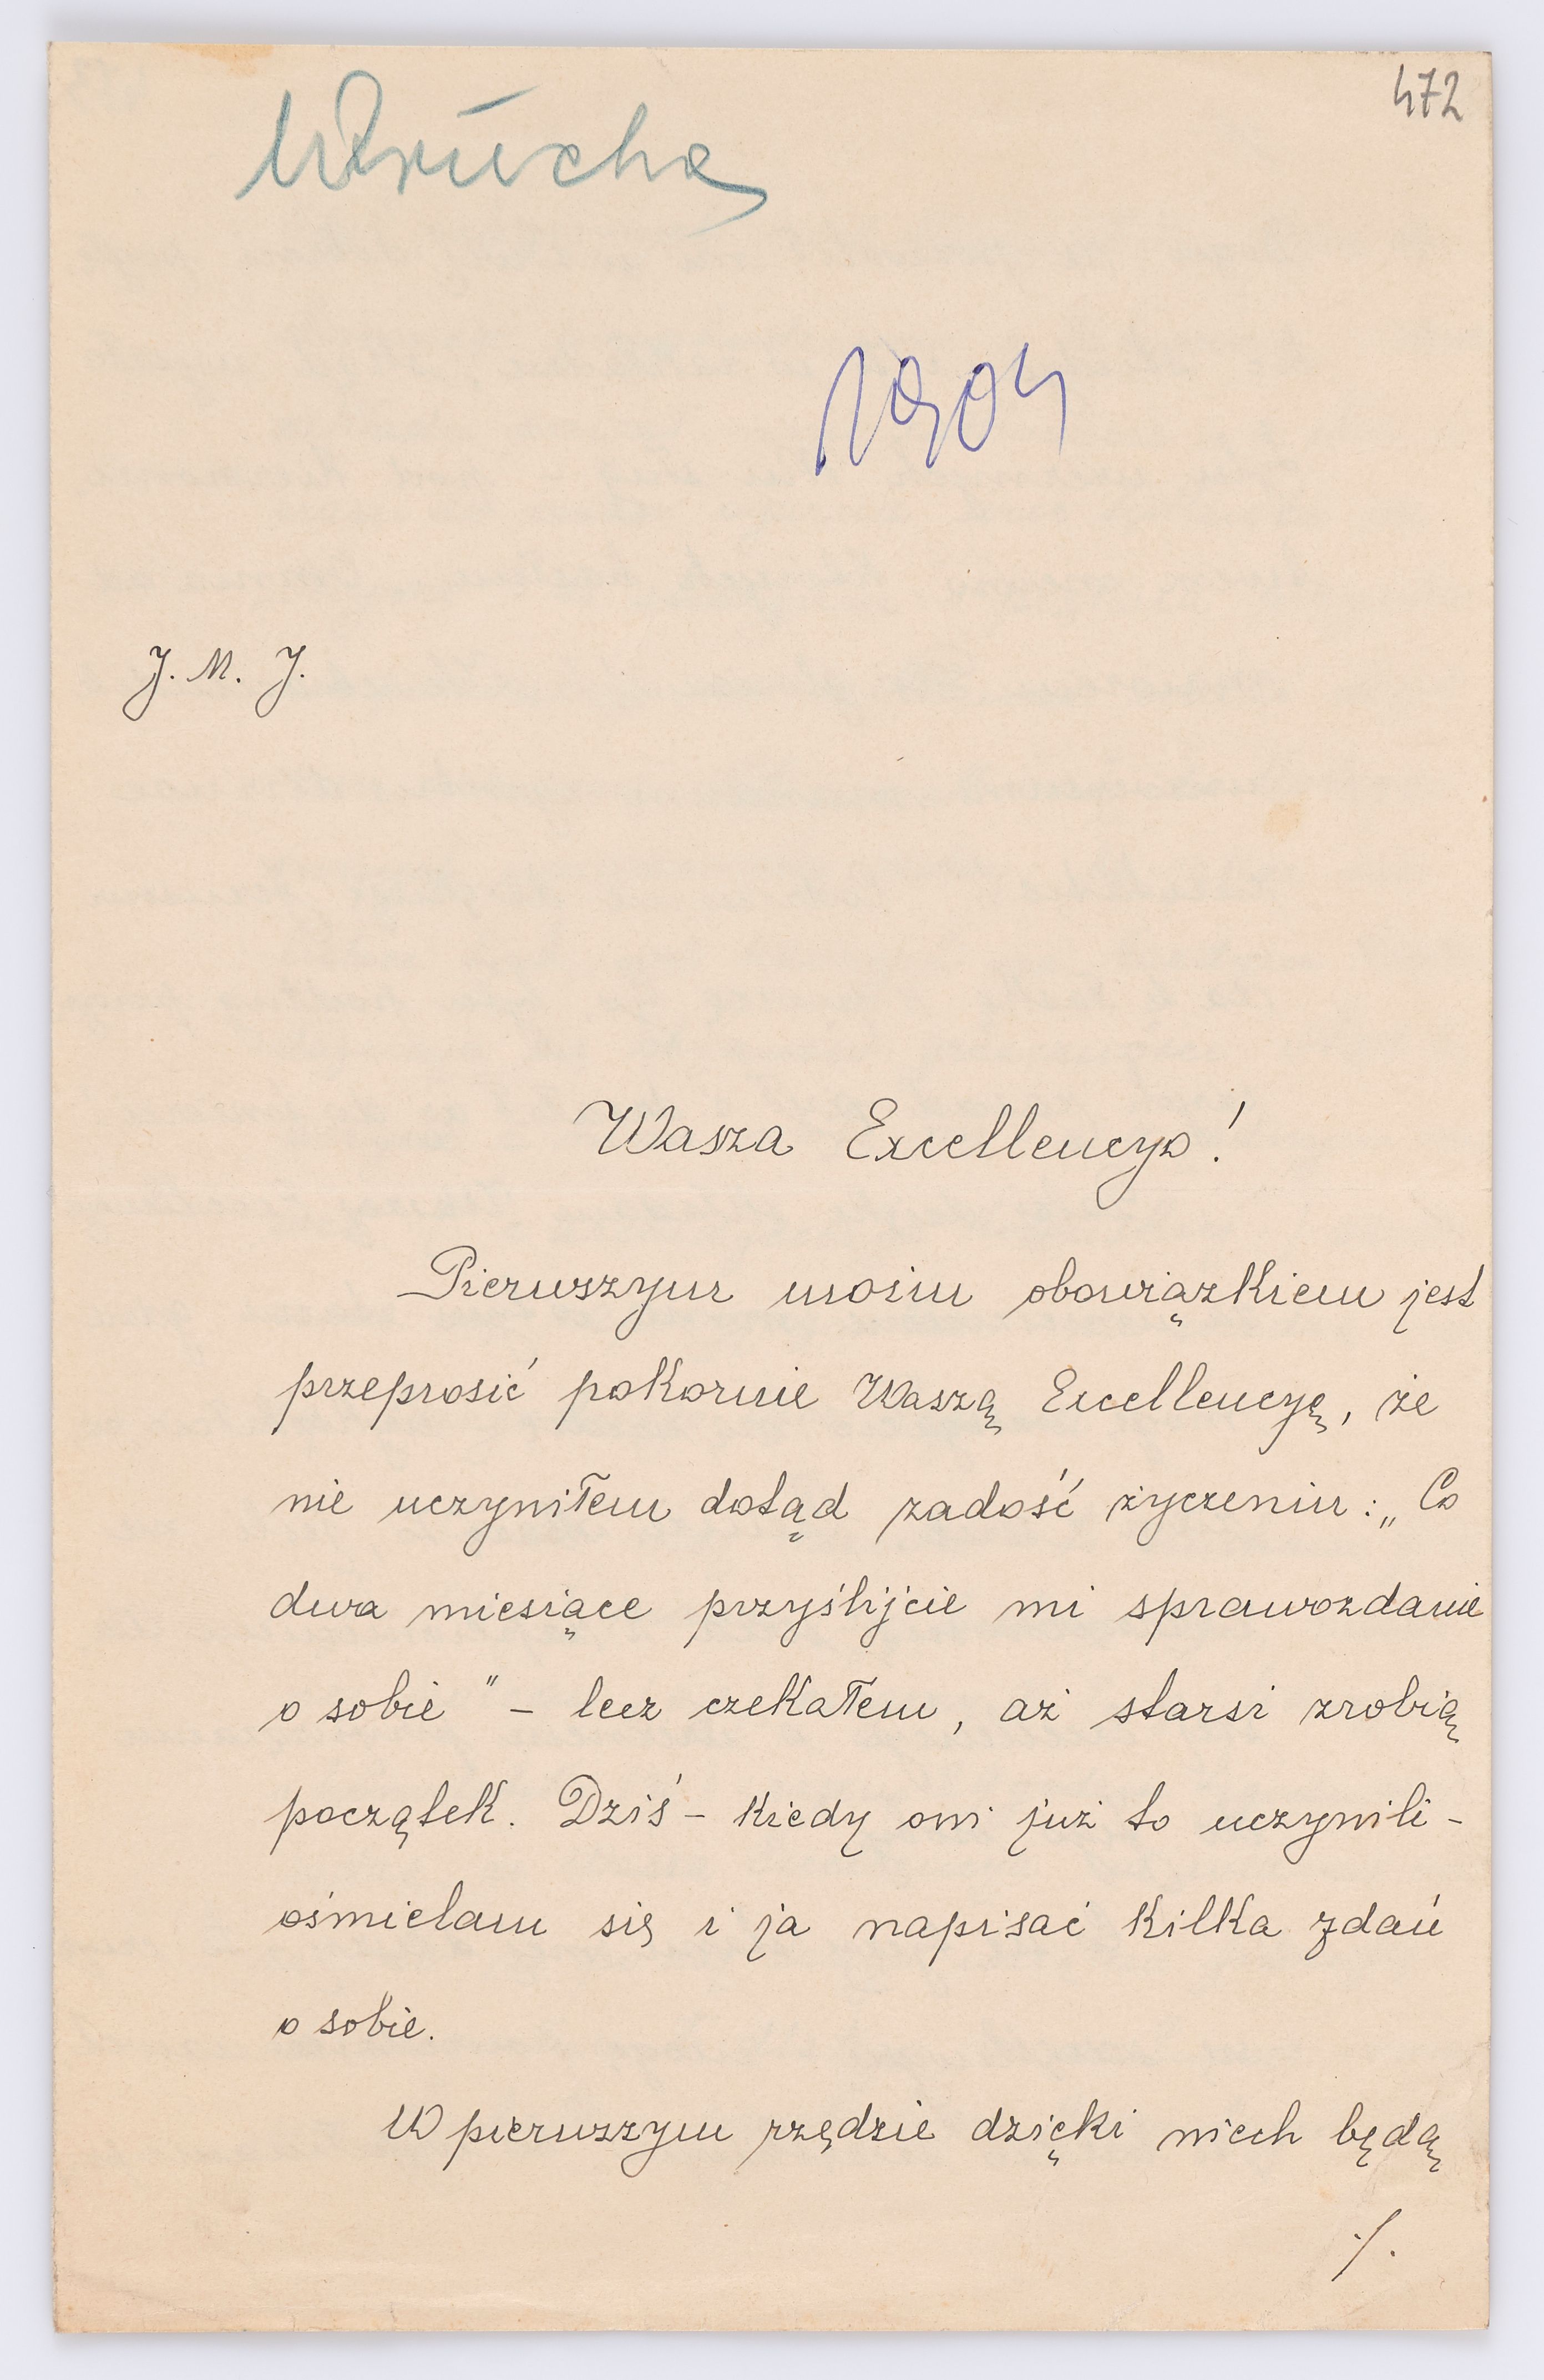 472
1904
J. M. J.
Wasza Excellencyo!
Pierwszym moim obowiązkiem jest
przeprosić pokornie Waszą Excellencyę, że
nie uczyniłem dotąd zadość życzeniu: „Co
dwa miesiące przyślijcie mi sprawozdanie
o sobie" – lecz czekałem, aż starsi zrobią
początek. Dziś – kiedy oni już to uczynili –
ośmielam się i ja napisać kilka zdań
o sobie.
W pierwszym rzędzie dzięki niech będą
./.